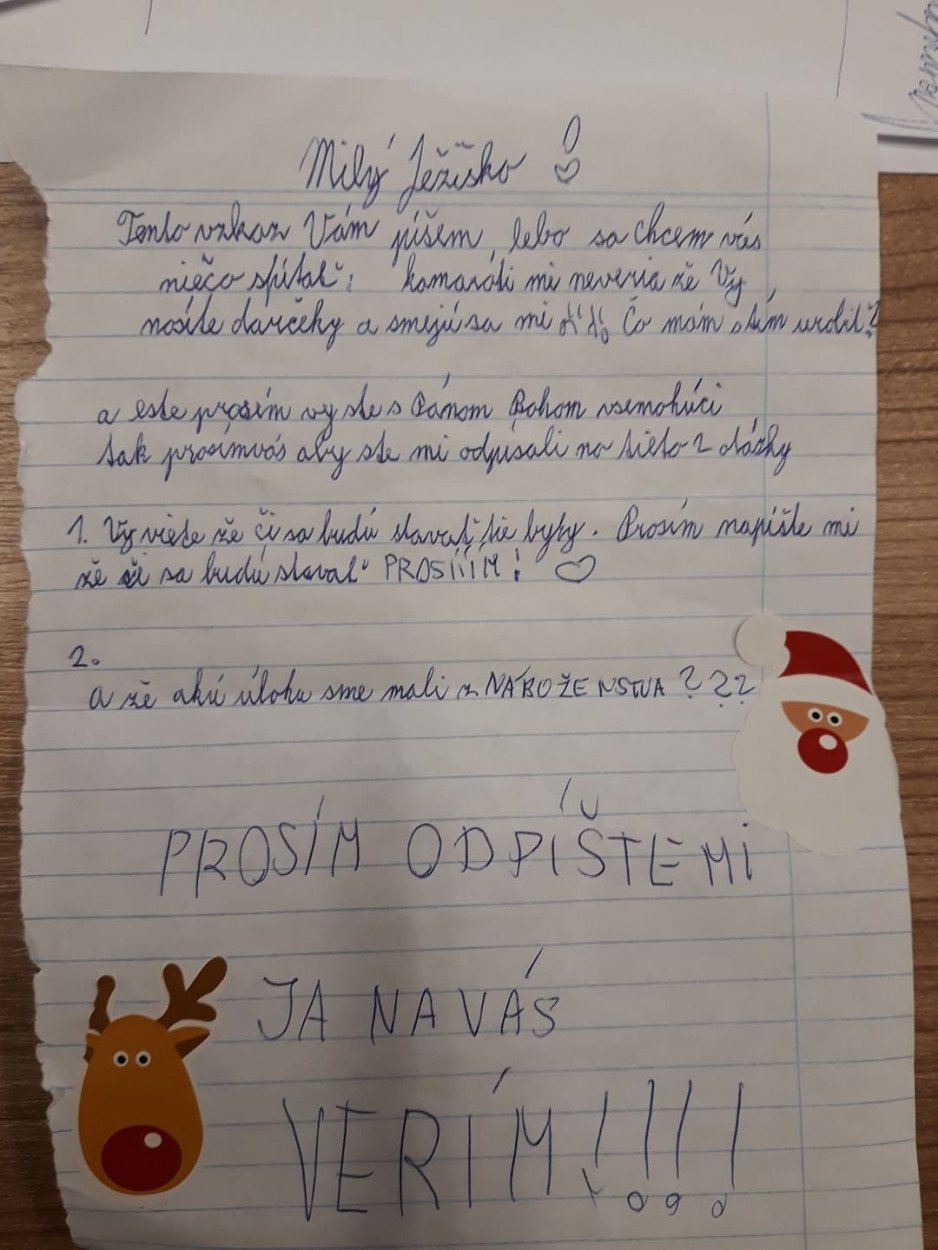 Milý Ježiško !
Tento vzkaz Vám píšem, lebo sa chcem vás
niečo spítať: kamaráti mi neveria že Vy
nosíte darčeky a smejú sa mi !!! Čo mám s tím urobiť?
a este prosím vy ste s Pánom Bohom vsemohúci
tak prosímvás aby ste mi odpísali na tieto 2 otázky
1. Vy viete že či sa budú stavať tie byty. Prosím napíšte mi
že či sa budú stavať PROSÍÍÍM! ♡
2.
a že akú úlohu sme mali z NÁBOŽENSTVA ???
PROSÍM ODPÍŠTE MI
JA NA VÁS
VERÍM!!!!